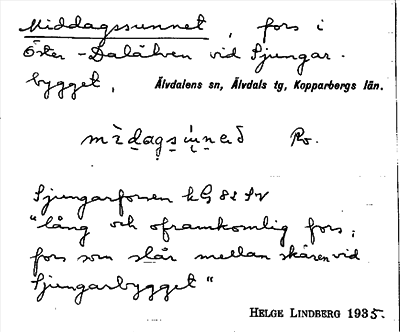 Middagssunnet, fors i
Öster-Dalälven vid Sjungar-
bygget, Älvdalens sn, Älvdals tg, Kopparbergs län.
Ro.
Sjungarforsen kG 82 SV
"lång och oframkomlig fors;
fors som slår mellan skären vid
Sjungarbygget"
HELGE LINDBERG 1935.